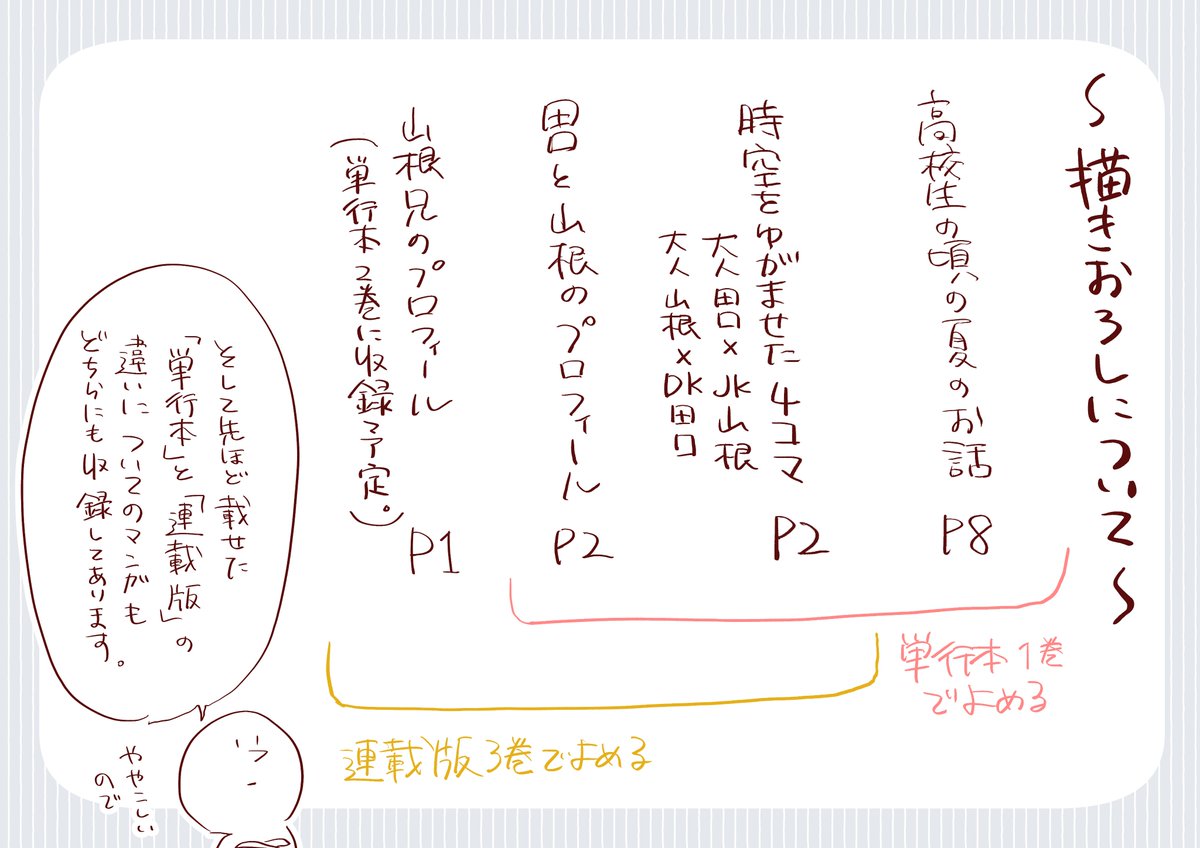 ～描きおろしについて～
高校生の頃の夏のお話 P8
時空をゆがませた4コマ P2
大人田口×JK山根
大人山根×DK田口
田口と山根のプロフィール P2
山根兄のプロフィール P1
(単行本2巻に収録予定。)
単行本1巻
でよめる
連載版3巻でよめる
そして先ほど載せた
「単行本」と「連載版」の
違いについてのマンガも
どちらにも収録してあります。
ややこしい
ので